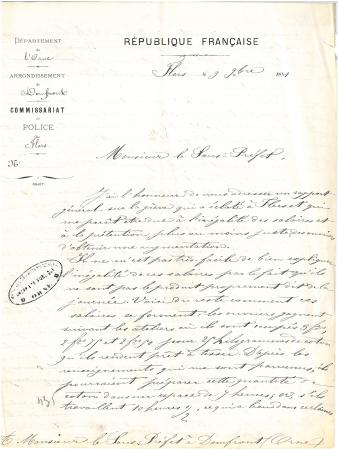 DÉPARTEMENT
de
l'Orne
ARRONDISSEMENT
de
Domfront
COMMISSARIAT
DE
POLICE
de
Flers
N°
OBJET:
RÉPUBLIQUE FRANÇAISE
Flers 9 9bre 1881
Monsieur le Sous-Préfet,
J'ai l'honneur de vous adresser un rapport
général sur la grève qui a éclaté à Flers et qui
me paraît due à l'inégalité des salaires et
à la prétention, plus ou moins juste des ouvriers
d'obtenir une augmentation.
Il ne m'est pas très facile de bien expliquer
l'inégalité de ces salaires par le fait qu'ils
ne sont pas le produit proprement dit de la
journée. Voici du reste comment ces
salaires se forment: les ouvriers gagnent
suivant les ateliers où ils sont occupés
pour kilogrammes de coton
qu'ils rendent prêt à tisser. D'après les
renseignements qui me sont parvenus, ils
pourraient préparer cette quantité de
coton dans un espace de 7 heures; or, s'ils
travaillent 10 heures ½, ce qui a lieu dans certaines
à Monsieur le Sous-Préfet à Domfront (Orne)